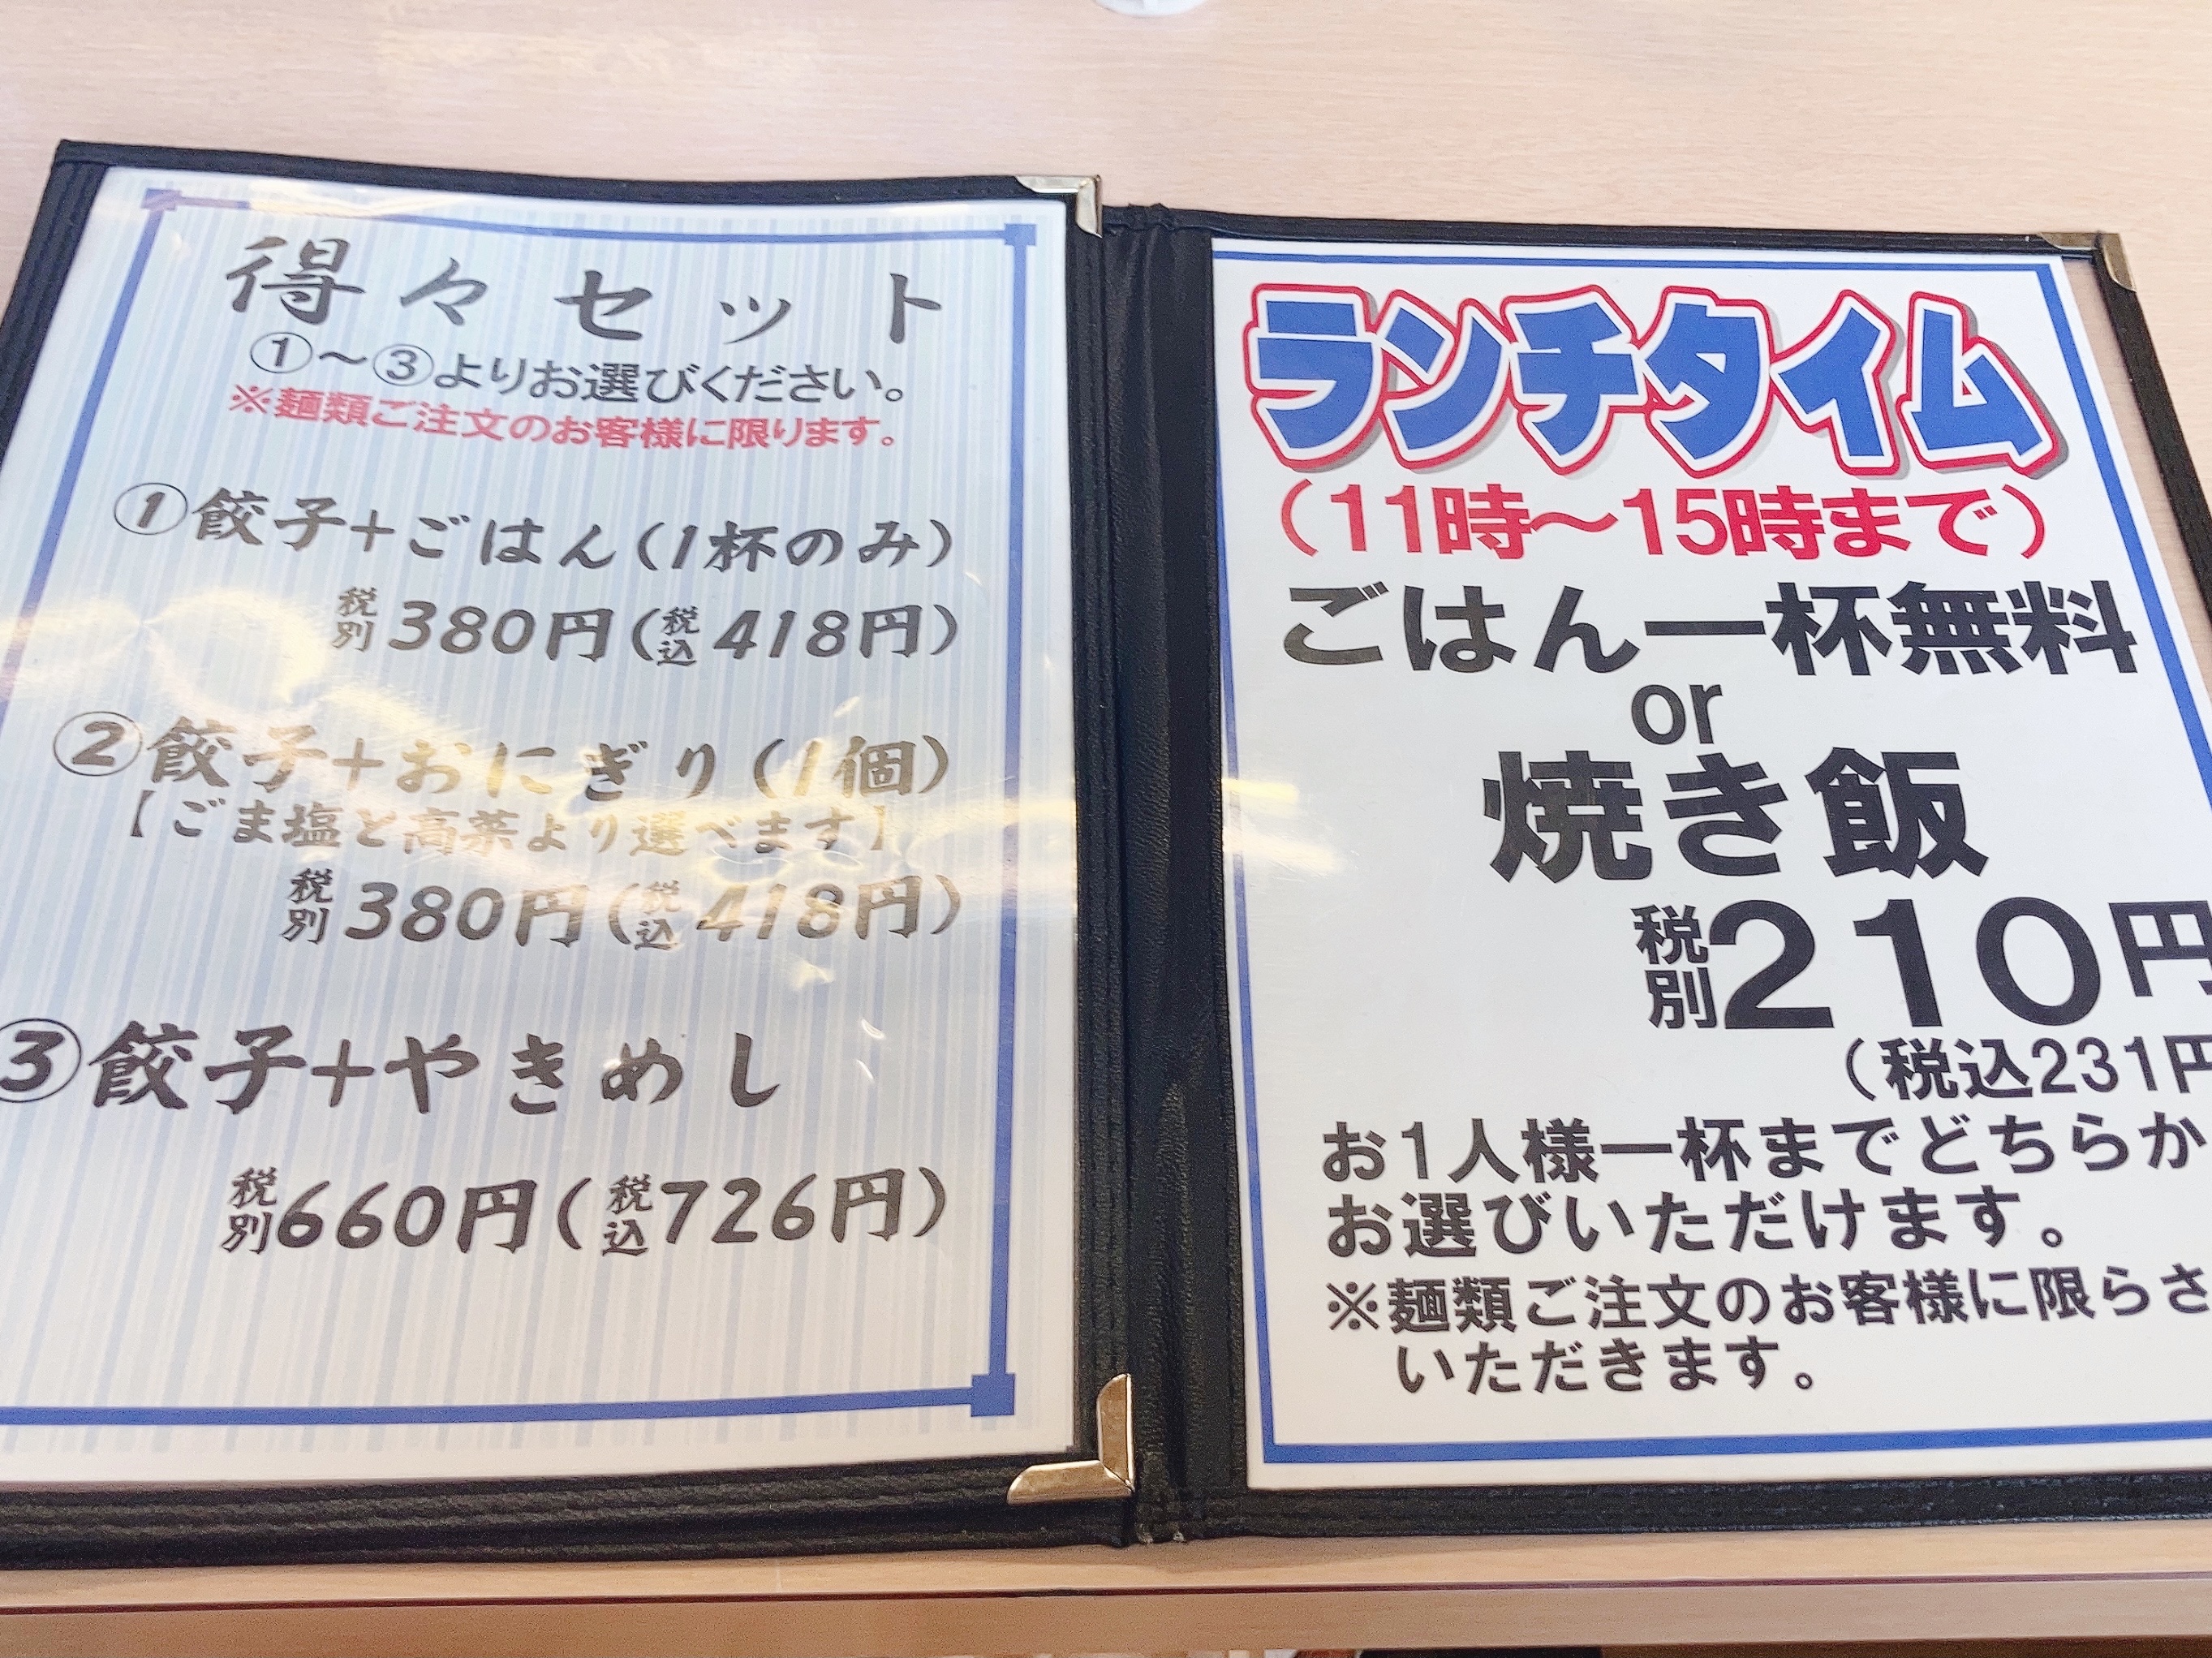 得々セット
①～③よりお選びください。
※麺類ご注文のお客様に限ります。
①餃子+ごはん(1杯のみ)
税別380円(税込418円)
②餃子+おにぎり(1個)
【ごま塩と高菜より選べます】
税別380円(税込418円)
③餃子+やきめし
税別660円(税込726円)
ランチタイム
(11時～15時まで)
ごはん一杯無料
or
焼き飯
税別210円
(税込231円
お1人様一杯までどちらか
お選びいただけます。
※麺類ご注文のお客様に限らさ
いただきます。